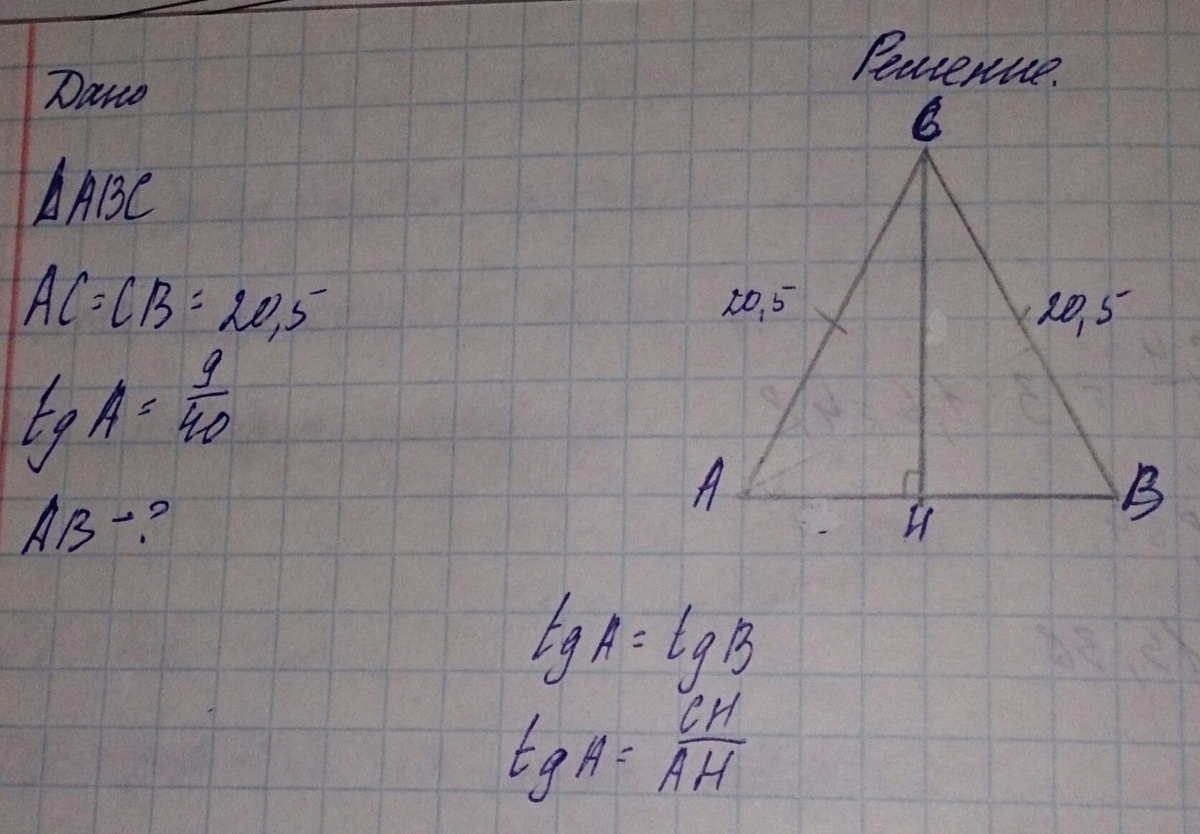 Дано
Решение.
ΔABC
AC=CB=20,5
tg A = 9/40
AB-?
C
20,5
20,5
A
H
B
tg A = tg B
tg A = CH/AH